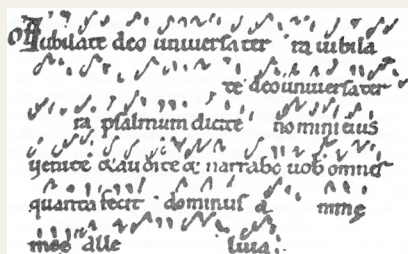 Iubilate deo universa ter ra iubila
te deo universa ter
ra psalmum dicite nomini eius
venite & audite & narrabo vob omnes
quanta fecit dominus anime
mee alle luia